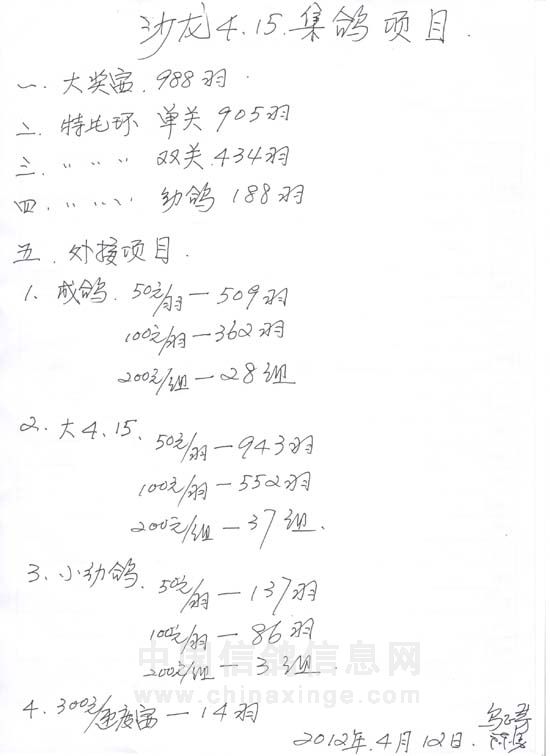 沙龙4.15.集鸽项目.
一.大奖赛.988羽.
二.特比环 单关905羽
三. " " " 双关.434羽
四. " " " 幼鸽188羽
五.外接项目.
1.成鸽.50元/羽—509羽
100元/羽—362羽
200元/组—28组
2.大4.15、50元/羽—943羽
100元/羽—552羽
200元/组—37组.
3.小幼鸽.50元/羽—137羽
100元/羽—86羽
200元/组—3组.
中国信鸽信息网
www.chinaxinge.com
4.300元/速度赛—14羽
2012年.4月12日.